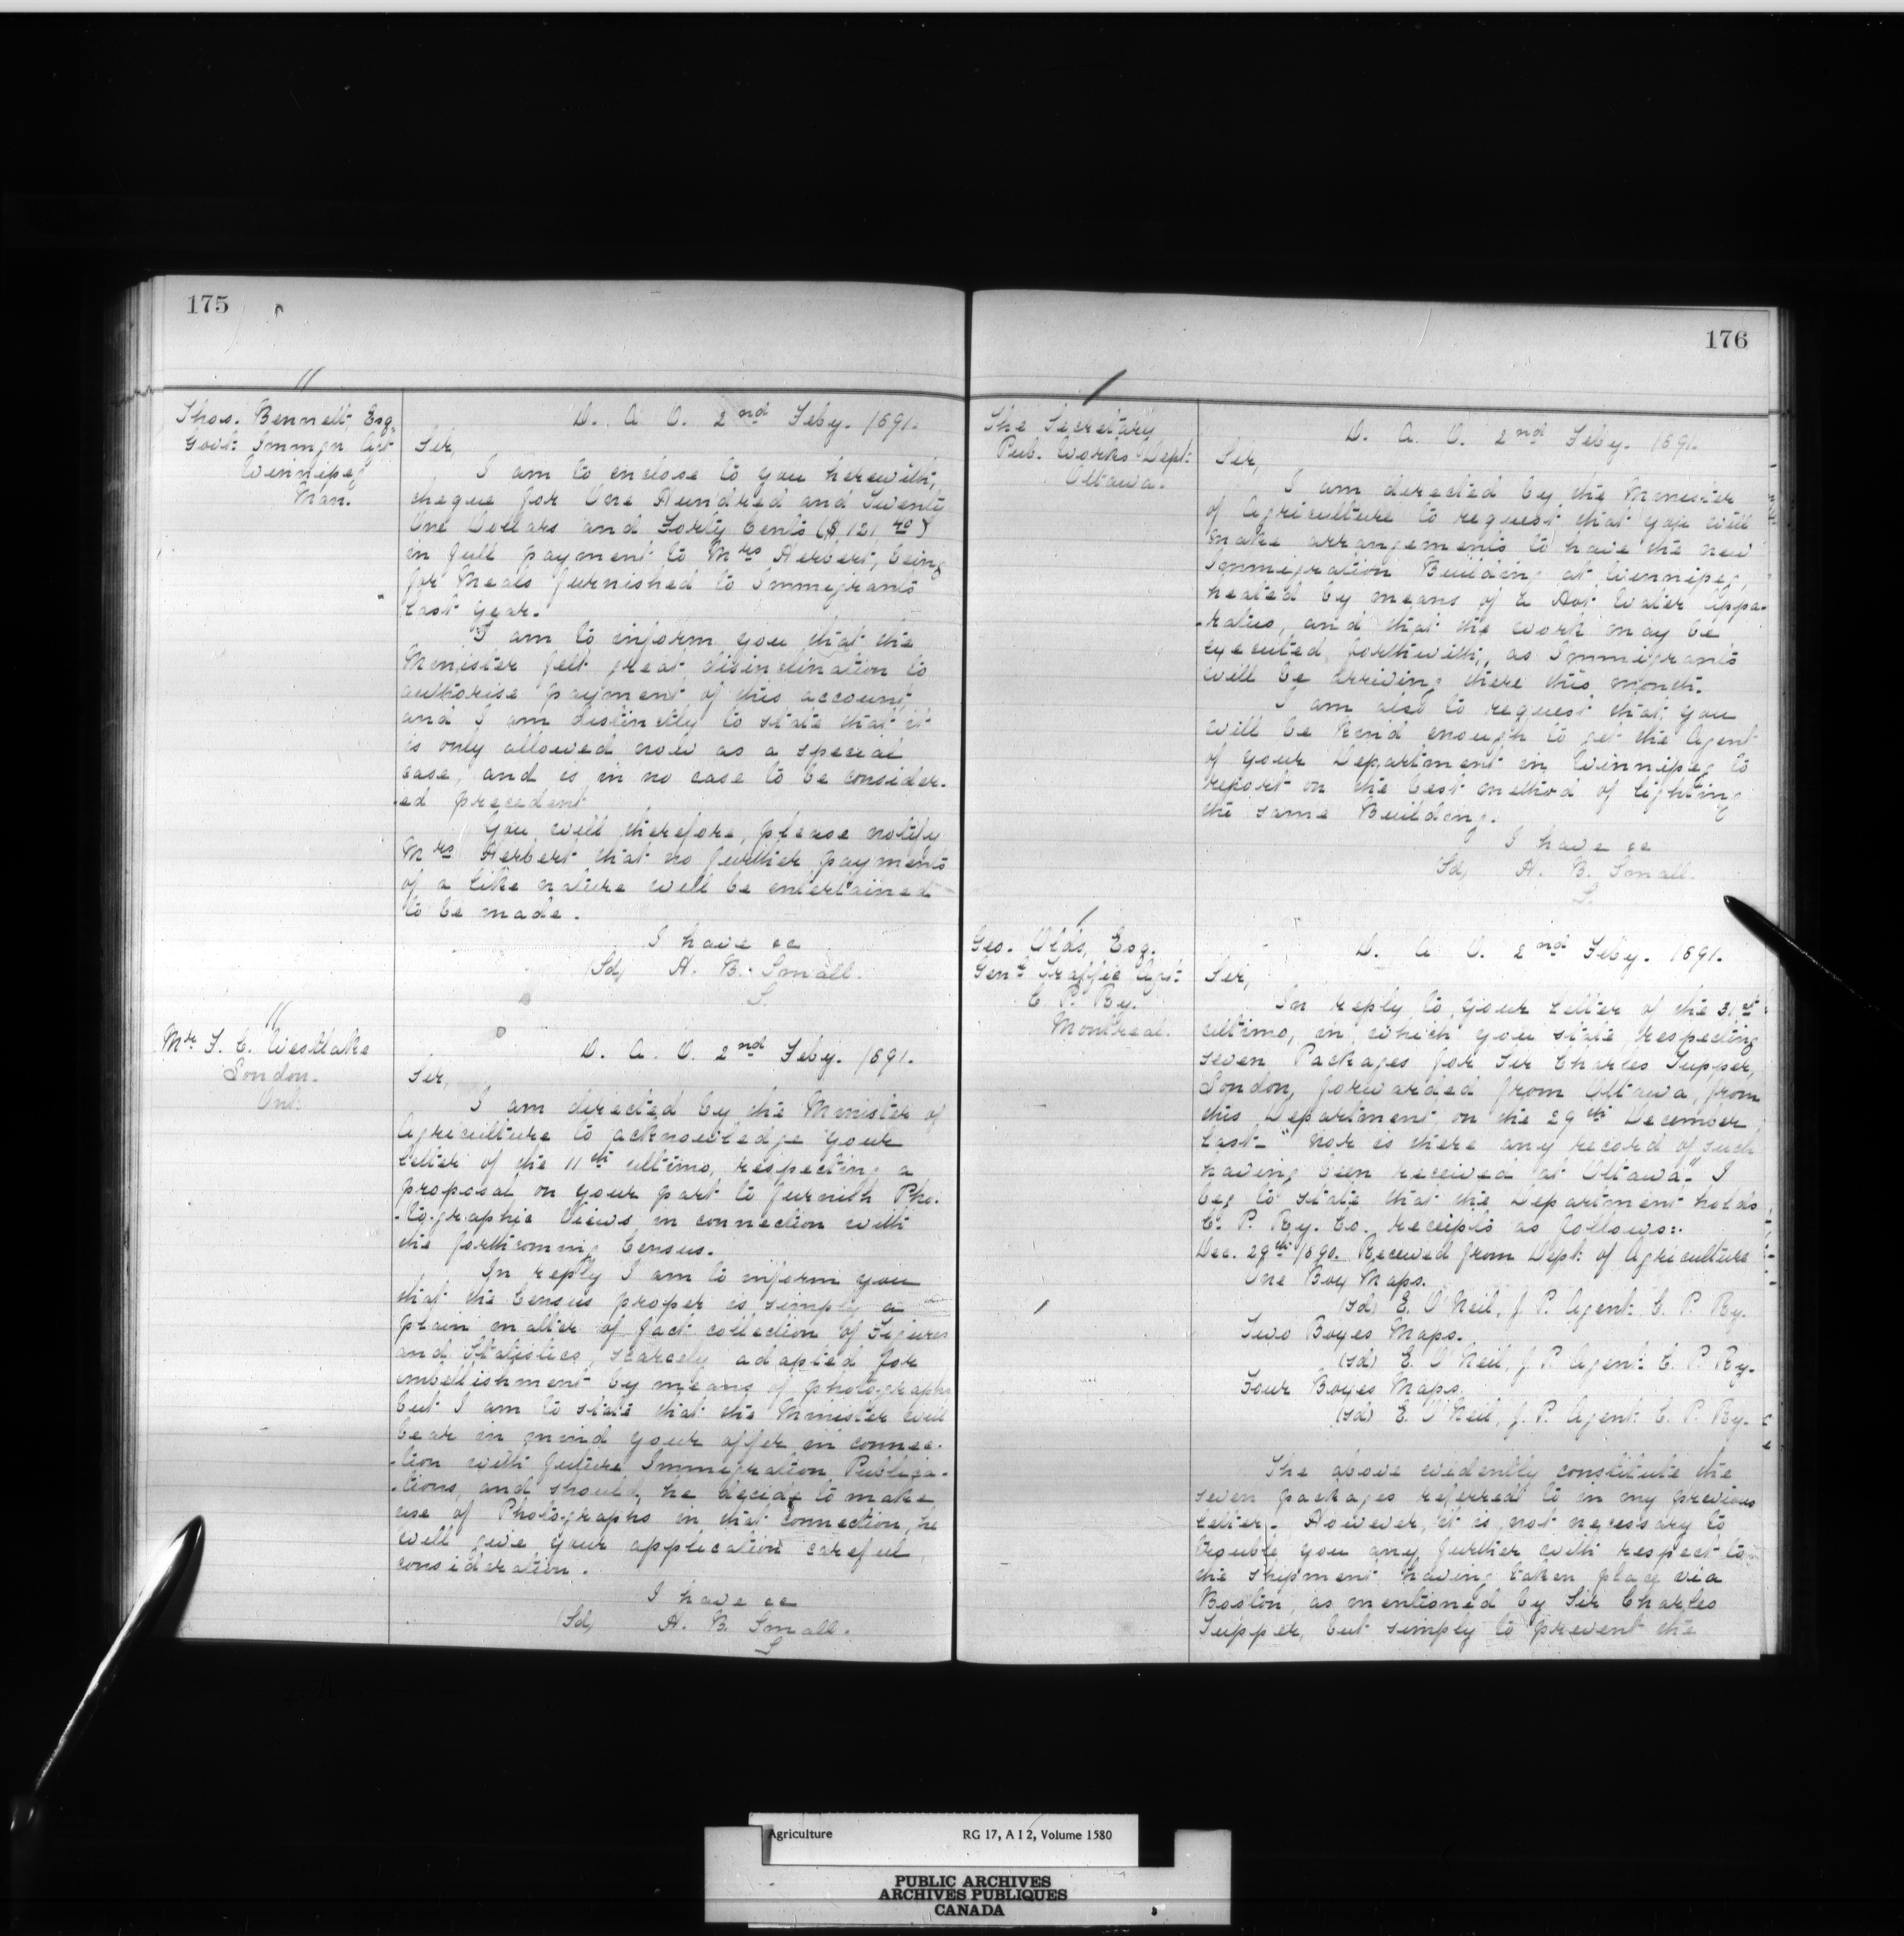 175
Thos. Bennett, Esq.
Govt: Immgn Agt
Winnipeg
Man.
D. A. O. 2nd Feby. 1891.
Sir,
I am to enclose to you herewith,
cheque for One Hundred and Twenty
One Dollars and Forty Cents ($121.40)
in full payment to Mrs Herbert, being
for Meals furnished to Immigrants
last year.
I am to inform you that the
Minister felt great disinclination to
authorise payment of this account,
and I am distinctly to state that it
is only allowed now as a special
case, and is in no case to be consider-
-ed precedent
You will therefore, please notify
Mrs Herbert that no further payments
of a like nature will be entertained
to be made.
I have &c
(Sd) H. B. Small.
S.
Mr F. C. Westlake
London.
Ont.
D. A. O. 2nd Feby. 1891.
Sir,
I am directed by the Minister of
Agriculture to acknowledge your
letter of the 11th ultimo, respecting a
proposal on your part to furnish Pho-
-tographic Views in connection with
the forthcoming Census.
In reply I am to inform you
that the Census proper is simply a
plain matter of fact collection of Figures
and Statistics, scarcely adapted for
embellishment by means of photographs
but I am to state that the Minister will
bear in mind your offer in connec-
-tion with future Immigration Publica-
-tions, and should he decide to make
use of Photographs in that connection, he
will give your application careful
consideration.
I have &c
(Sd) H. B. Small.
S
176
The Secretary
Pub. Works Dept:
Ottawa.
D. A. O. 2nd Feby. 1891.
Sir,
I am directed by the Minister
of Agriculture to request that you will
make arrangements to have the new
Immigration Building at Winnipeg,
heated by means of a Hot Water Appa-
-ratus, and that the work may be
executed forthwith, as Immigrants
will be arriving there this month.
I am also to request that you
will be kind enough to get the Agent
of your Department in Winnipeg to
report on the best method of lighting
the same Building.
I have &c
(Sd) H. B. Small.
S.
Geo. Olds, Esq.
Genl Traffic Agt:
C. P. Ry.
Montreal.
D. A. O. 2nd Feby. 1891.
Sir,
In reply to your letter of the 31st
ultimo, in which you state respecting
seven Packages for Sir Charles Tupper,
London, forwarded from Ottawa, from
this Department, on the 29th December
last- "nor is there any record of such
having been received at Ottawa". I
beg to state that the Department holds
C. P. Ry. Co. receipts as follows:-
Dec. 29th 1890. Received from Dept: of Agriculture
One Box Maps.
(sd) E. O'Neil, J. P. Agent: C. P. Ry.
Two Boxes Maps.
(sd) E. O'Neil, J. P. Agent: C. P. Ry.
Four Boxes Maps.
(sd) E. O'Neil, J. P. Agent: C. P. Ry.
The above evidently constitute the
seven packages referred to in my previous
letter. However, it is not necessary to
trouble you any further with respect to
the shipment having taken place via
Boston, as mentioned by Sir Charles
Tupper, but simply to prevent the
Agriculture RG 17, A I 2, Volume 1580
PUBLIC ARCHIVES
ARCHIVES PUBLIQUES
CANADA